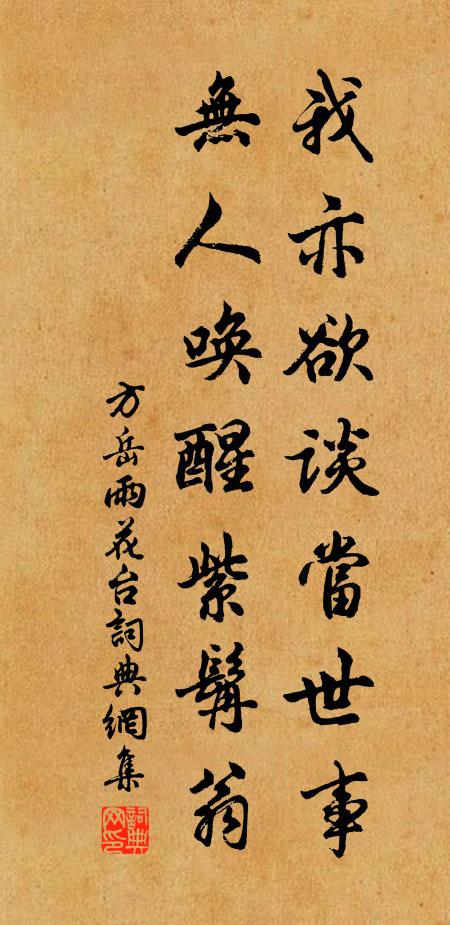 我亦欲談當世事
無人喚醒紫髯翁
方岳雨花台詞典網集
詞典网印